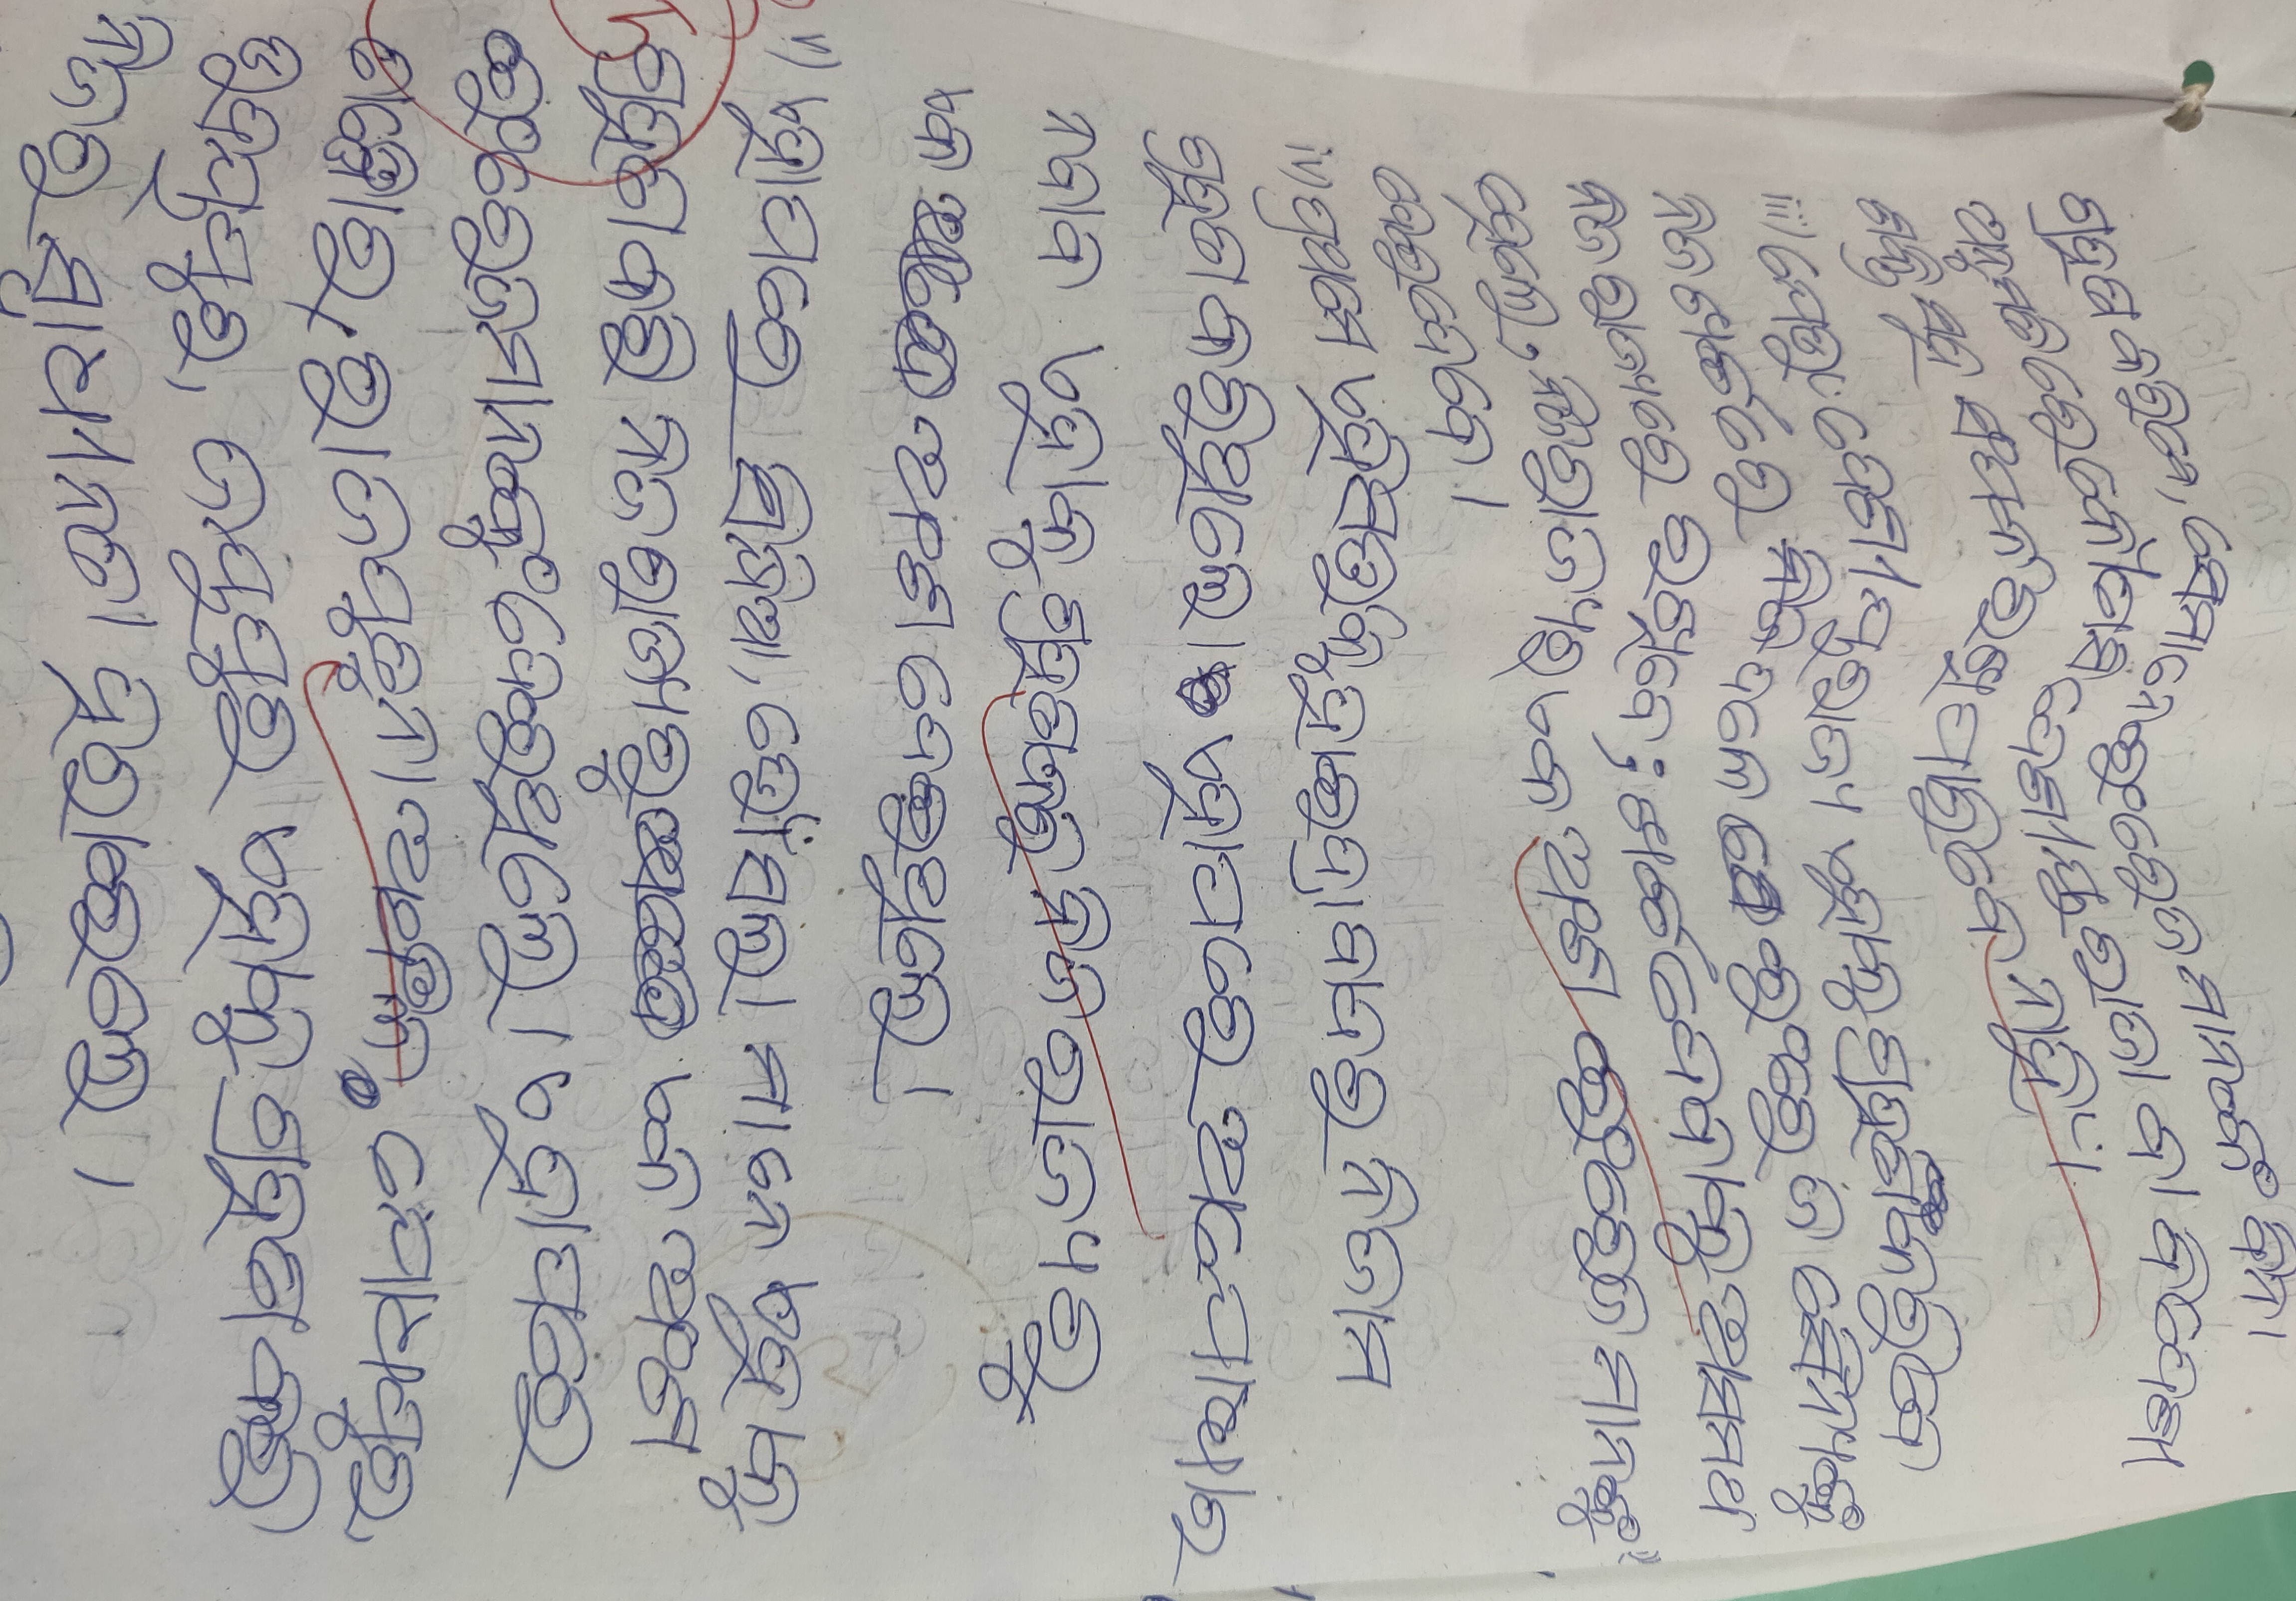 ଗ୍ରହଣ କରିବେ, ସେମାନେ ଇଂରେଜ ମାନଙ୍କ ବିନା
ଅନୁମତିରେ କୌଣସି ଦେଶୀୟ ରାଜା ବା ବିଦେଶୀ
ଶକ୍ତି ସହ ସଂପର୍କ ରଖି ପାରିବେ ନାହିଁ ।
iii) ଯେଉଁ ଦେଶୀୟ ରାଜ୍ୟ ଏହାକୁ ଗ୍ରହଣ କରିବେ
ନିଜ ଖର୍ଚ୍ଚରେ ଦଳେ ଇଂରେଜ ସୈନ୍ୟଙ୍କୁ
ନିଜ ରାଜ୍ୟରେ ରଖିବେ; ଖର୍ଚ୍ଚ ଦେବାକୁ ଅସମର୍ଥ
ହେଲେ, ନିଜ ରାଜ୍ୟର ଏକ ଅଂଶ ଇଂରେଜ ମାନଙ୍କୁ
ଦେଇଦେବେ ।
iv) ପ୍ରଥମେ ଏହି ସର୍ତ୍ତକୁ ହାଇଦ୍ରାବାଦର ନିଜାମ
ଗ୍ରହଣ କରିଥିଲେ । ଏହାପରେ ଅଯୋଧ୍ୟାର
ନବାବ ଏହାକୁ ଗ୍ରହଣ କରି ନିଜ ରାଜ୍ୟରୁ
ଏକ ଅଂଶ ଦେଇଥିଲେ ।
v) ଏହାପରେ ସିନ୍ଧିଆ, ଭୋଁସଲା ମାନେ ଏହାକୁ
ଗ୍ରହଣ କରି ନିଜ ରାଜ୍ୟରୁ ଏକ ଅଂଶ
ଇଂରେଜମାନଙ୍କୁ ଦେଇଥିଲେ । ଏହାପରେ
ତାଞ୍ଜୋର, ରାଜପୁତୁନା ଅଞ୍ଚଳ, ଯୋଧପୁର,
ଉଦୟପୁର, ଜୟପୁର ଏହାକୁ ଗ୍ରହଣ କରି
ନିଜର ସ୍ୱାଧୀନତା ହରାଇଲେ ।